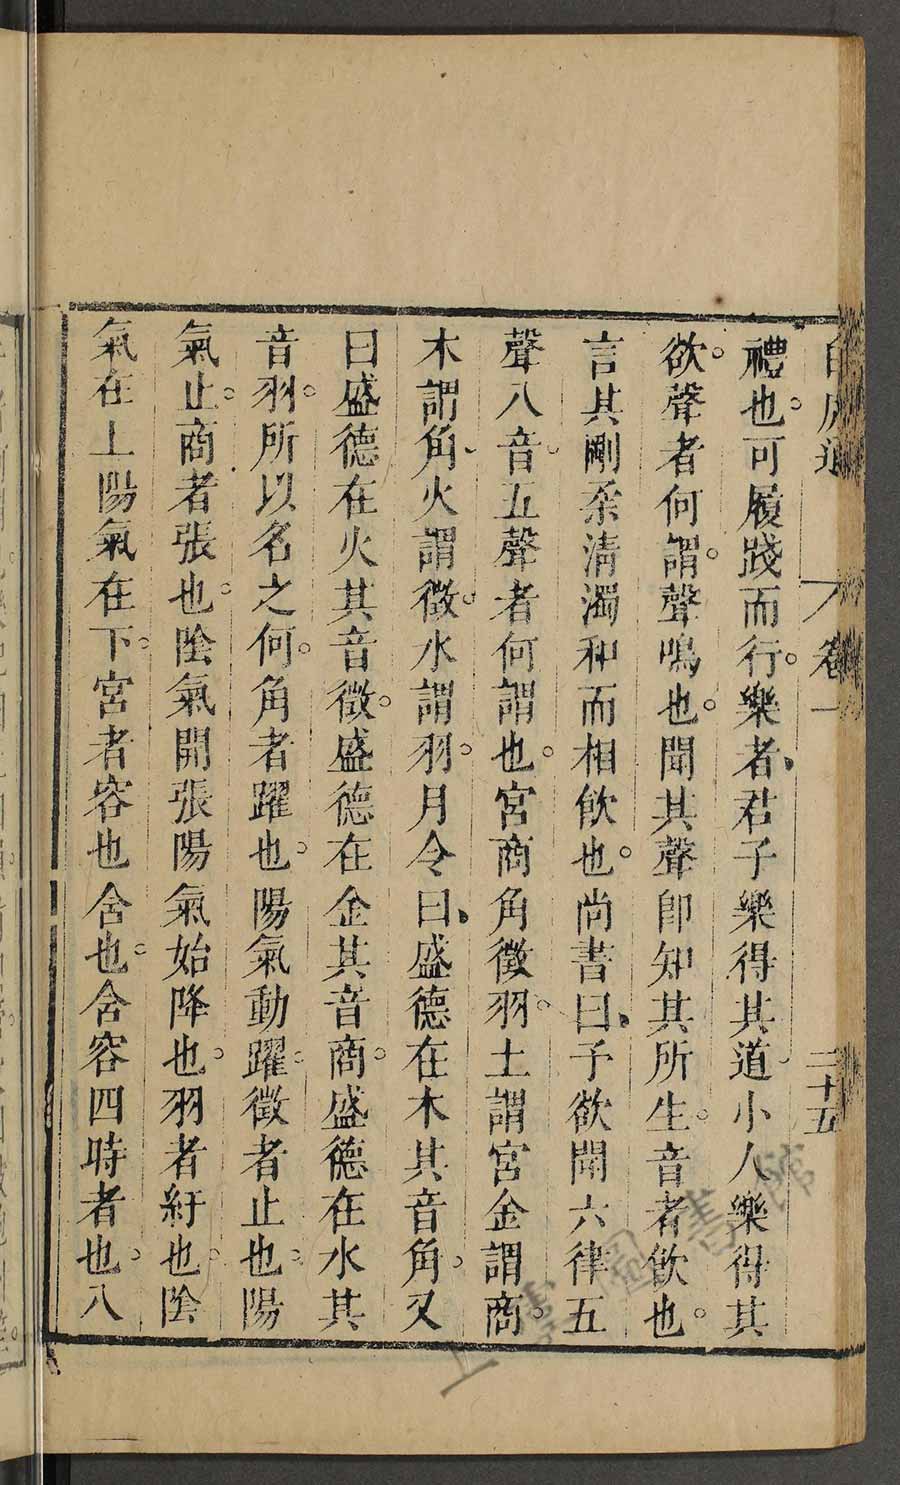 白虎通 卷一 二十五
禮也。可履踐而行。樂者、君子樂得其道、小人樂得其
欲。聲者何謂。聲鳴也。聞其聲卽知其所生。音者飮也。
言其剛柔清濁和而相飮也。尚書曰、予欲聞六律五
聲八音。五聲者何謂也。宮商角徵羽。土謂宮金謂商。
木謂角、火謂徵、水謂羽。月令曰、盛德在木其音角。又
曰盛德在火其音徵。盛德在金其音商。盛德在水其
音羽。所以名之何。角者躍也。陽氣動躍。徵者止也。陽
氣止。商者張也。陰氣開張陽氣始降也。羽者紆也。陰
氣在上陽氣在下。宮者容也含也。含容四時者也。八